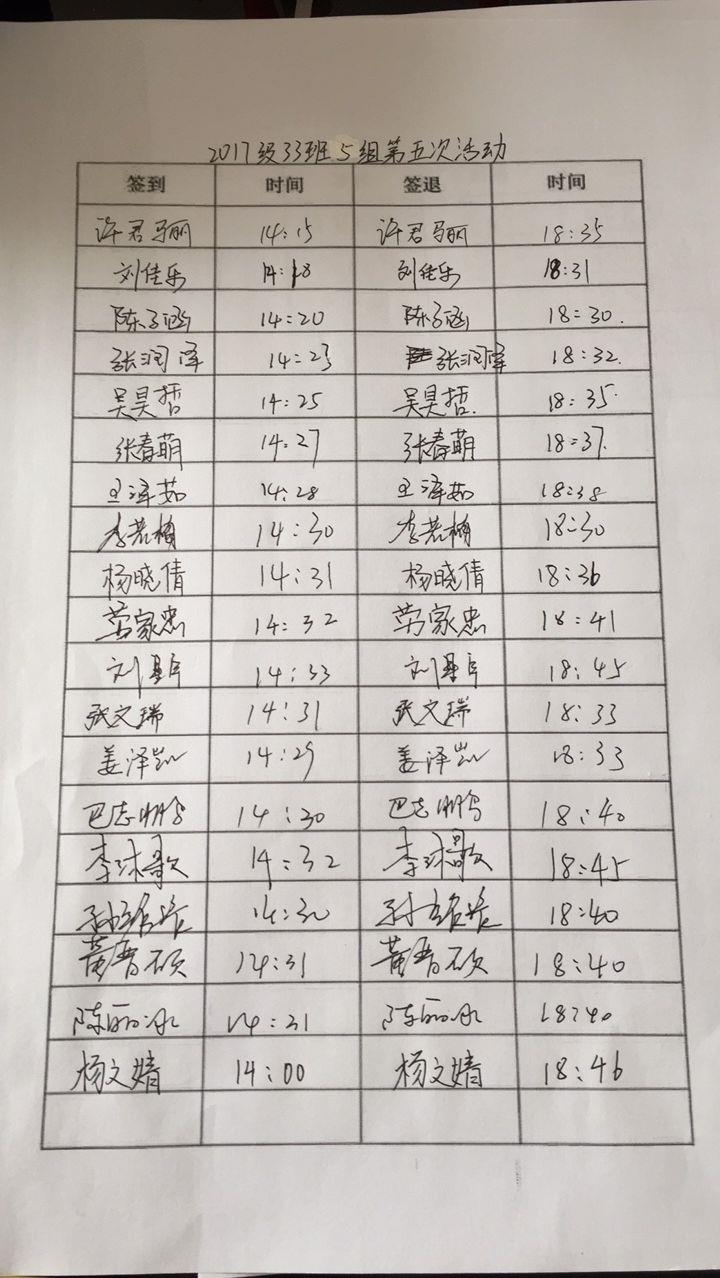 2017级33班5组第五次活动
签到 时间 签退 时间
许君丽 14:15 许君丽 18:35
刘佳乐 14:18 刘佳乐 18:31
陈子涵 14:20 陈子涵 18:30.
张润泽 14:23 张润泽 18:32.
吴昊哲 14:25 吴昊哲. 18:35.
张春萌 14:27 张春萌 18:37.
王泽茹 14:28 王泽茹 18:38
李若楠 14:30 李若楠 18:30
杨晓倩 14:31 杨晓倩 18:36
劳家忠 14:32 劳家忠 18:41
刘 14:33 刘 18:45
张文瑞 14:31 张文瑞 18:33
姜泽凯 14:29 姜泽凯 18:33
巴志鹏 14:30 巴志鹏 18:40
李球歌 14:32 李球歌 18:45
孙 14:30 孙 18:40
黄晋硕 14:31 黄晋硕 18:40
陈丽冰 14:31 陈丽冰 18:40
杨文婧 14:00 杨文婧 18:46